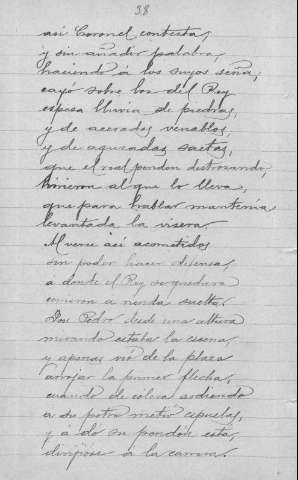 38
así Coronel contesta,
y sin añadir palabra,
haciendo á los suyos seña,
cayó sobre los del Rey
espesa lluvia de piedras,
y de acerados venablos,
y de aguzadas saetas,
que el real pendon destrozando,
hirieron al que lo lleva,
que para hablar mantenia
levantada la visera.
Al verse asi acometidos
sin poder hacer defensa,
a donde el Rey se quedara
corrieron a rienda suelta.
Don Pedro desde una altura
mirando estaba la escena,
y apenas vió de la plaza
arrojar la primer flecha,
cuando de cólera ardiendo
a su potro metió espuelas,
y á dó su pendon está,
dirijióse á la carrera.